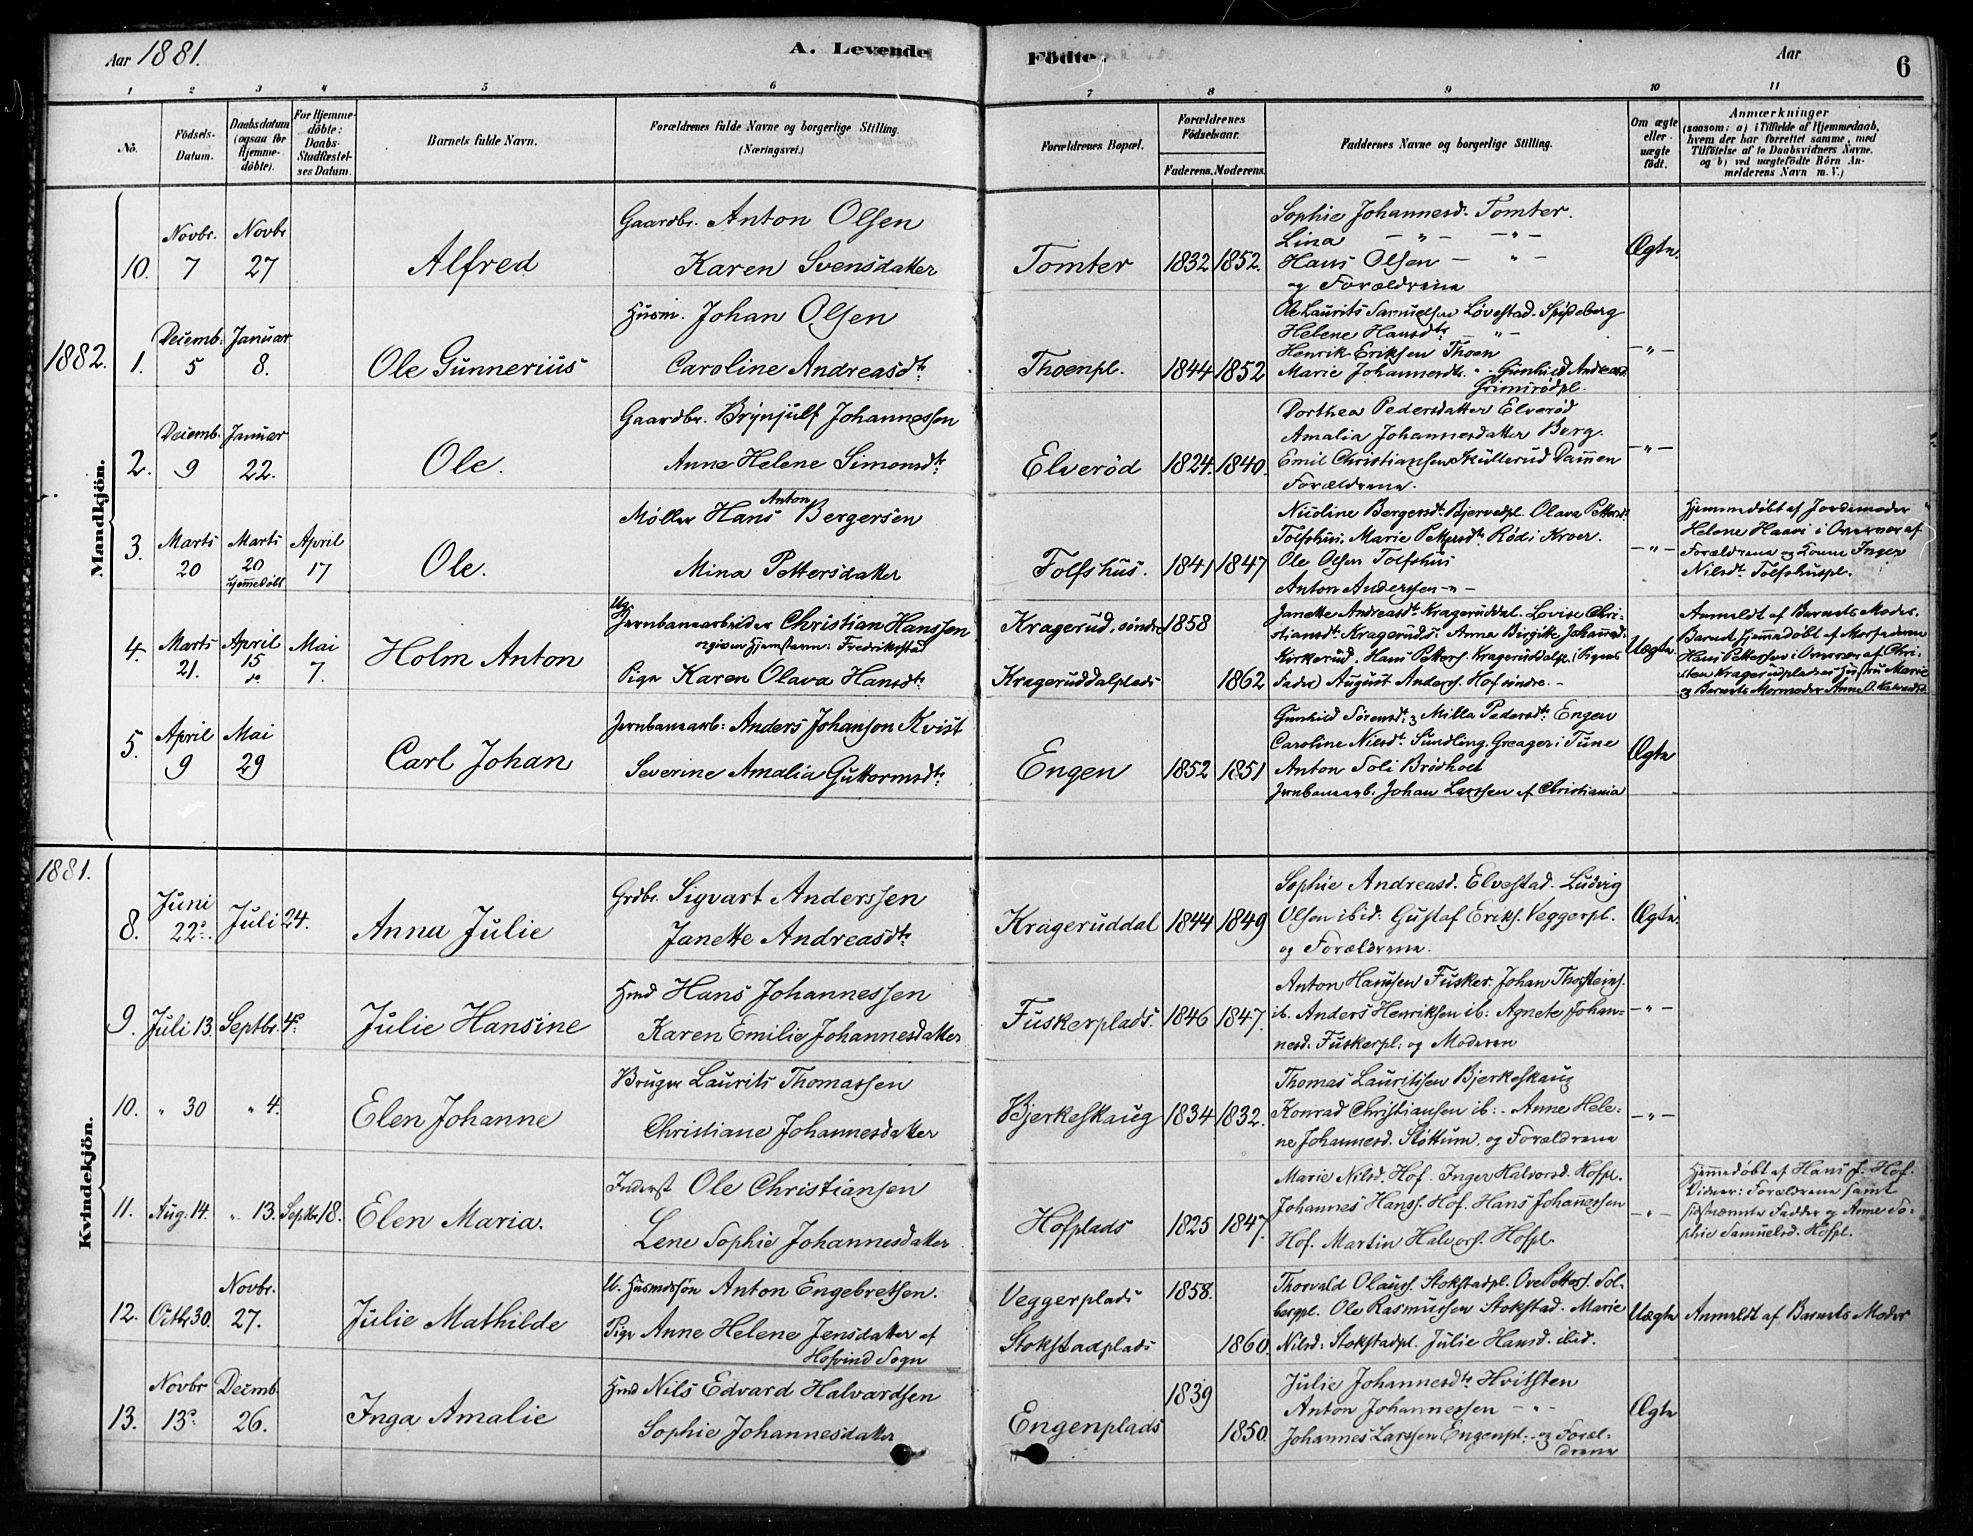 Aar 1881.
A. Levende
Födte.
Aar
6
1 2 3 4 5 6 7 8 9 10 11
No.
Födsels-Datum.
Daabsdatum (ogsaa for Hjemme-döbte).
For Hjemme-döbte: Daabs-Stadfæstel-ses Datum.
Barnets fulde Navn.
Forældrenes fulde Navne og borgerlige Stilling. (Næringsvei.)
Forældrenes Bopæl.
Forældrenes Födselsaar.
Faderens. Moderens.
Faddernes Navne og borgerlige Stilling.
Om ægte eller uægte födt.
Anmærkninger
(saasom: a) i Tilfælde af Hjemmedaab, hvem der har forrettet samme, med Tilföielse af to Daabsvidners Navne, og b) ved uægtefödte Börn An-melderens Navn m. V.)
Mandkjön.
10. Novbr. 7 Novbr 27 Alfred
Gaardbr. Anton Olsen
Karen Svensdatter
Tomter 1832 1852.
Sophie Johannesd. Tomter.
Lina - " - - " -
Hans Olsen - " -
og Forældrene
Ægte.
1882.
1. Decemb. 5 Januar 8. Ole Gunnerius
Husm. Johan Olsen
Caroline Andreasdtr
Thoenpl. 1844 1852
Ole Laurits Samuelsen Løvestad. Spydeberg
Helene Hansdtr - " -
Henrik Eriksen Thoen
Marie Johannesdtr. " Gunhild Andreasd.
Grimsrødpl.
- " -
2. Decemb. 9 Januar 22. Ole.
Gaardbr. Brynjulf Johannessen
Anne Helene Simonsdtr
Elverød 1824. 1840.
Dorthea Pedersdatter Elverød
Amalia Johannesdatter Berg.
Emil Christiansen Skullerud Dammen
Forældrene.
- " -
3. Marts 20 Marts 20 hjemmedøbt April 17 Ole.
Møller Hans Anton Bergersen
Mina Pettersdatter
Tolfshus. 1841 1847
Nicoline Bergersdtr Bjervedpl. Olava Pettersd.
Tolfshus. Marie Pettersdtr. Rød i Kroer.
Ole Olsen Tolfshus
Anton Andersen - " -
- " -
Hjemmedøbt af Jordemoder
Helene Haavi i Overvær af
Forældrene og Konne Inger
Nilsdtr. Tolfshuspl.
4. Marts 21. April 15 do Mai 7. Holm Anton
Ug. Jernbanearbeider Christian Hanssen
opgiven Hjemstavn: Fredrikstad
Pige Karen Olava Hansdtr
Kragerud, søndre 1858
Krageruddalplads 1862
Janette Andreasdtr Krageruddal. Lovise Chri-
stiansdtr Kragerudsr. Anna Birgitte Johannesd.
Kirkerud. Hans Petters. Krageruddalpl. Pigens
Fader August Anders. Hof søndre. -
Uægte
Anmeldt af Barnets Moder.
Barnet hjemmedøbt af Morfaderen
Hans Pettersen i Overvær af Chri-
sten Kragerupladsens Hustru Marie
og Barnets Mormoder Anne O. Halvorsd.
5. April 9 Mai 29 Carl Johan
Jernbanearb: Anders Johanson Kvist
Severine Amalia Guttormsdtr
Engen 1852 1851
Gunhild Sørensdtr og Milla Pedersdtr Engen
Caroline Nilsdtr Sundling. Greager i Tune
Anton Soli Brødholt
Jernbanearb. Johan Larssen af Christiania
Ægte
1881.
Kvindekjön.
8. Juni 22. Juli 24. Anna Julie
Grdbr. Sigvart Anderssen
Janette Andreasdtr
Krageruddal 1844 1849
Sophie Andreasd. Elvestad. Ludvig
Olsen ibid: Gustaf Eriks. Veggerpl.
og Forældrene.
Ægte.
9. Juli 13. Septbr. 4. Julie Hansine
Hmd Hans Johannessen
Karen Emilie Johannesdatter
Fuskerplads. 1846 1847.
Anton Hansen Fusker. Johan Thorsteins.
ib. Anders Henriksen ib: Agnete Johan-
nesd. Fuskerpl: og Moderen
- " -
10. " 30 " 4. Elen Johanne
Bruger Laurits Thomassen
Christiane Johannesdatter
Bjerkeskaug 1834 1832.
Thomas Lauritssen Bjerkeskaug
Konrad Christiansen ib: - Anne Hele-
ne Johannesd. Støttum. og Forældrene
- " -
11. Aug. 14. " 13. Septbr 18. Elen Maria.
Inderst Ole Christiansen
Lene Sophie Johannesdatter
Hofplads 1825 1847.
Marie Nilsd. Hof. Inger Halvorsd. Hofpl.
Johannes Hanss. Hof. Hans Johannessen
Hof. Martin Halvors. Hofpl.
- " -
Hjemmedøbt af Hans J. Hof.
Vidner: Forældrene samt
sidstnævnte Fadder og Anne So-
phie Samuelsd. Hofpl.
12. Octbr 30. Novbr. 27. Julie Mathilde
U. Husmdssøn Anton Engebretsen.
Pige Anne Helene Jensdatter af
Hofvind Sogn
Veggerplads 1858.
Stokstadplads 1860.
Thorvald Olauss. Stokstadpl. Ove Petters. Sol-
bergpl. Ole Rasmussen Stokstad. Marie
Nilsd: Stokstadpl. Julie Hansd. ibid.
Uægte
Anmeldt af Barnets Moder
13. Novbr 13. Decmb. 26. Inga Amalie
Hmd Nils Edvard Halvardsen
Sophie Johannesdatter
Engenplads 1839 1850.
Julie Johannesdtr Hvitsten
Anton Johannessen - " -
Johannes Larssen Engenpl. - og Foræl-
drene
Ægte